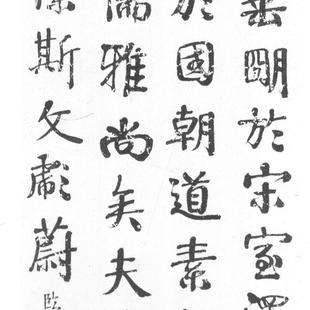 朙於宋室
於國朝道素
儒雅尚矣夫
斯文彪蔚